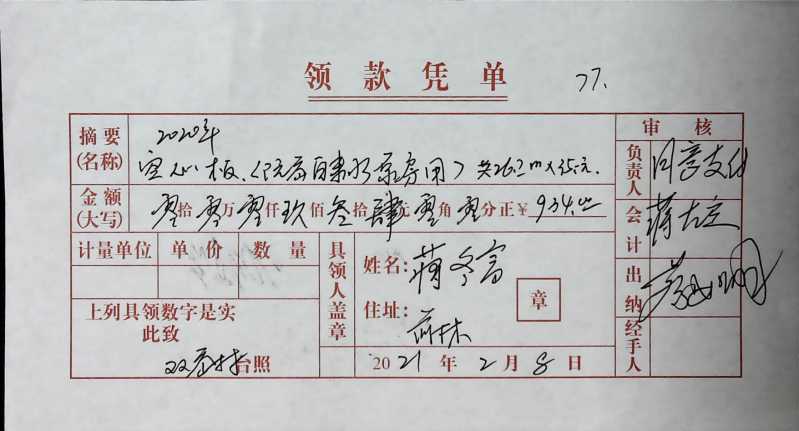 领款凭单
77.
摘要(名称) 2020年
空心板、 自来水泵房用) 共26.7m×35元.
金额(大写) 零拾零万零仟玖佰叁拾肆元零角零分正¥934.00
计量单位 单价 数量
上列具领数字是实
此致
双 村台照
具领人盖章
姓名:蒋冬富
住址:
章
2021年2月8日
审核
负责人 同意支付
会计 蒋
出纳
经手人